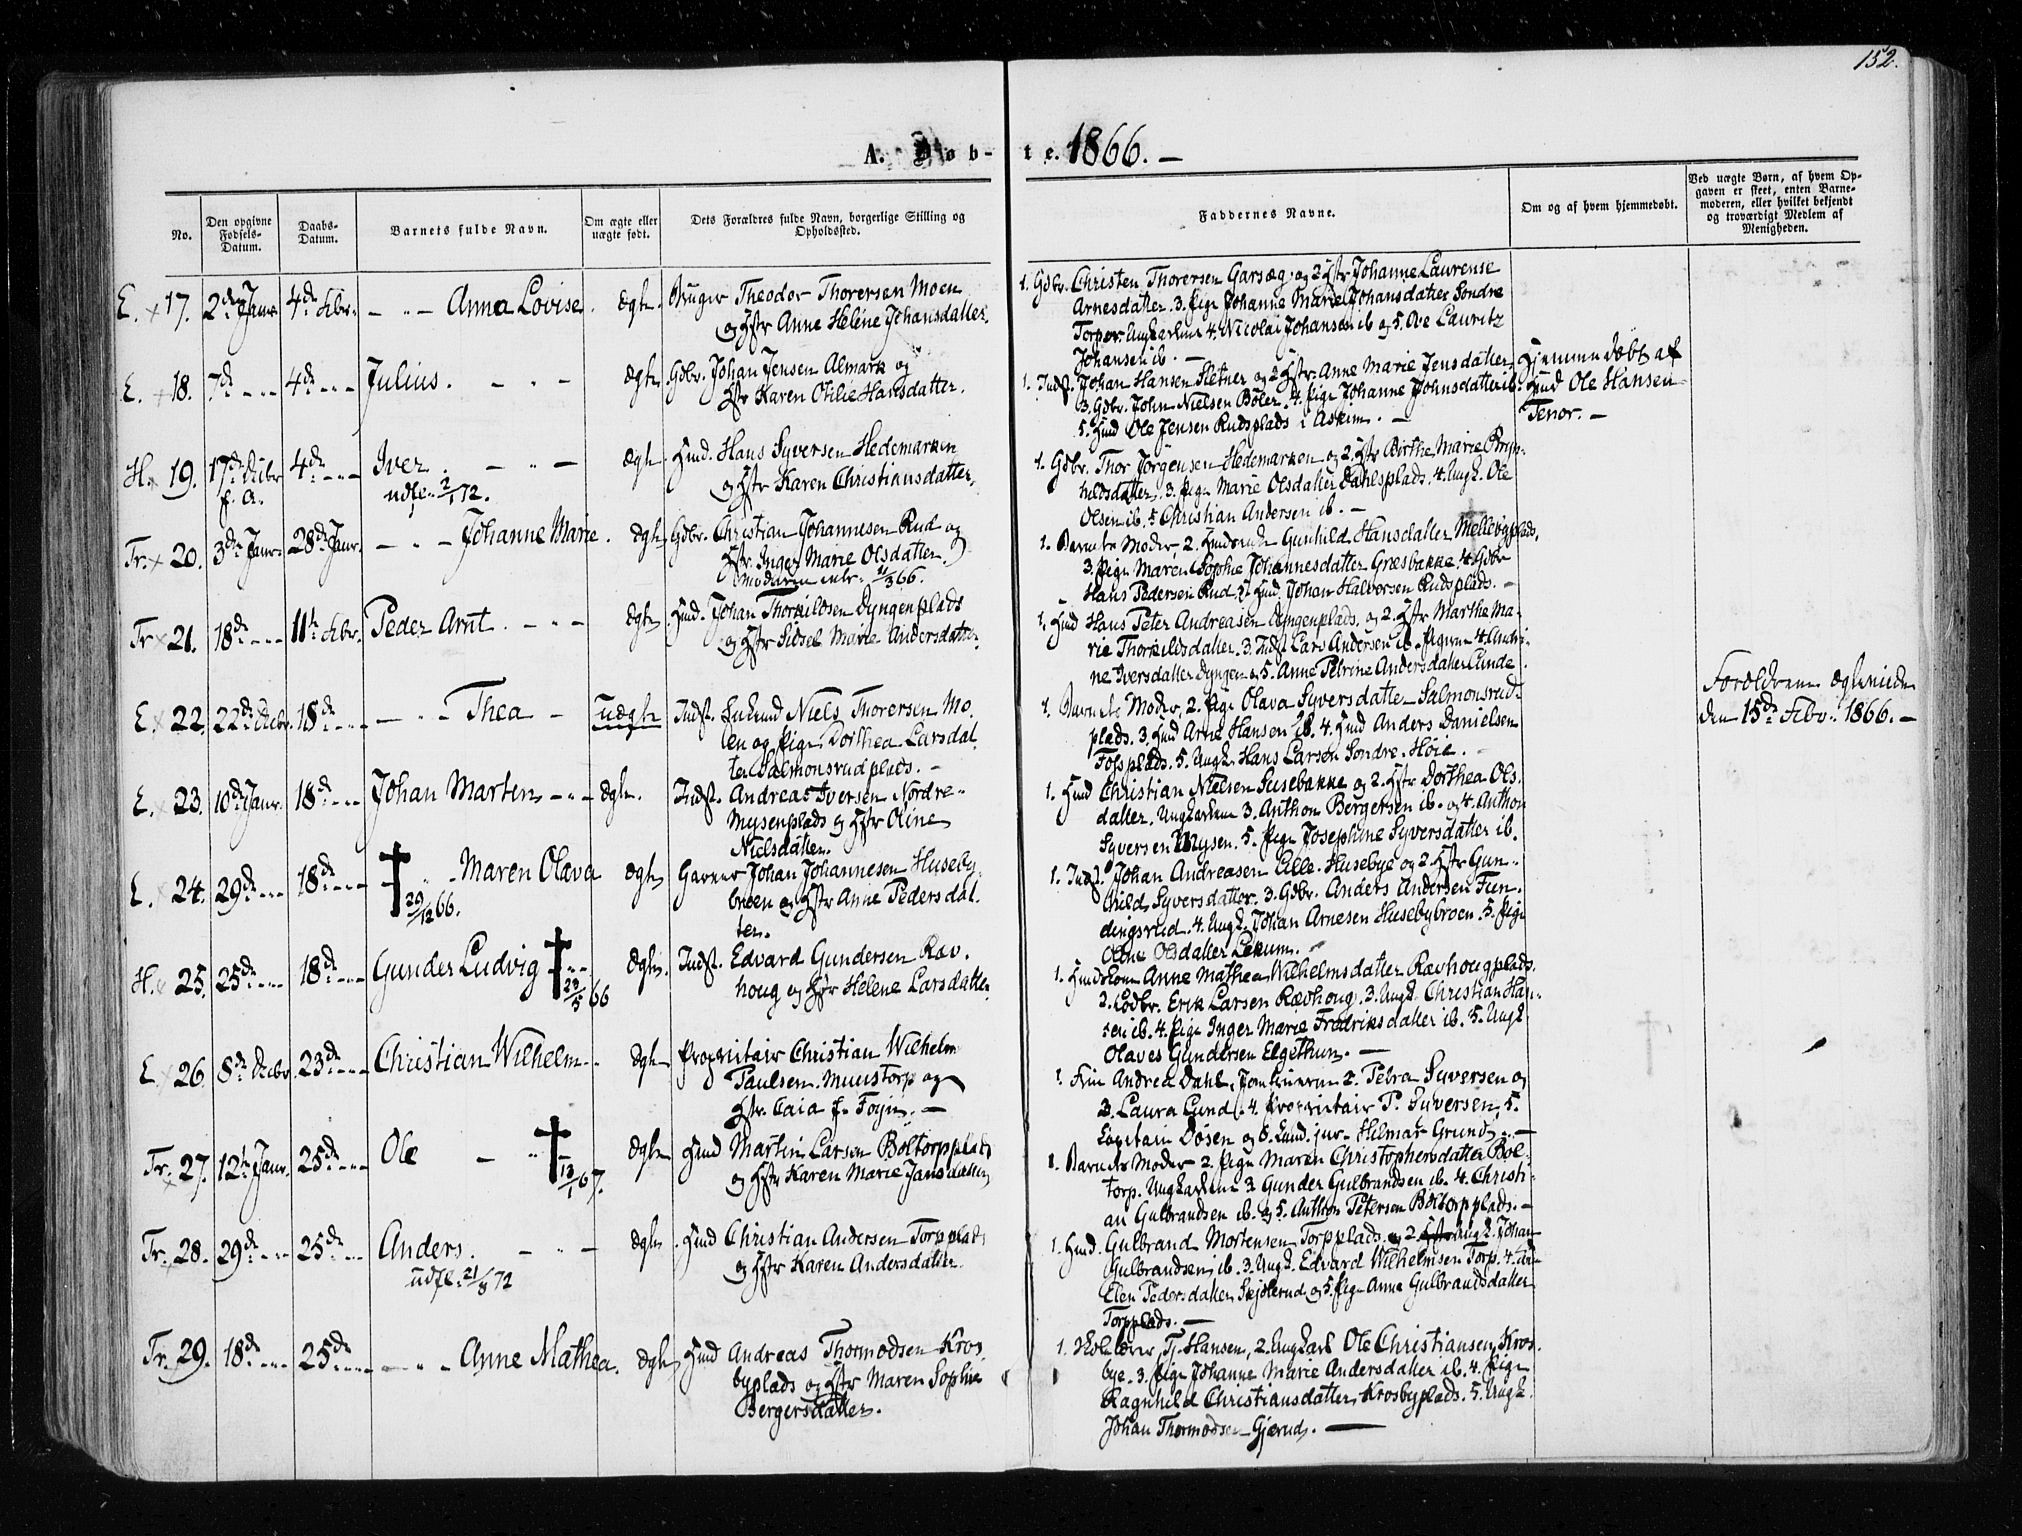 152.
A. Døb-te. 1866. —
No.
Den opgivne Fødsels-Datum.
Daabs-Datum.
Barnets fulde Navn.
Om ægte eller uægte født.
Dets Forældres fulde Navn, borgerlige Stilling og Opholdssted.
Faddernes Navne.
Om og af hvem hjemmedøbt.
Ved uægte Børn, af hvem Op-
gaven er skeet, enten Barne-
moderen, eller hvilket bekjendt
og troværdigt Medlem af
Menigheden.
E. × 17. 2den Janr. 4de Febr. — " — Anna Lovise. ægte. Bruger Theodor Thorersen Moen
og Hstr Anne Helene Johansdatter.
1. Gdbr. Christen Thorersen Garsæg, og 2 Hstr Johanne Laurense
Arnesdatter. 3. Pige Johanne Marie Johansdatter Søndre
Torper. Ungkarlene 4. Nicolai Johansen ib og 5. Ove Lauritz
Johansen ib. —
E. × 18. 7de - - - 4de - - - Julius. — " — ægte. Gdbr. Johan Jensen Almark og
Hstr Karen Otilie Hansdatter.
1. Indst. Johan Hansen Sletner og 2 Hstr. Anne Marie Jensdatter,
3. Gdbr. John Nielsen Bøler. 4. Pige Johanne Johnsdatter ib.
5. Hmd Ole Jensen Rudsplads i Askim. —
Hjemmedøbt af
Hmd Ole Hansen
Tenor. —
H. × 19. 17de Decbr 4de - - - Iver. — " — ægte. Hmd. Hans Syversen Hedemarken
f. A. udfl. 2/1 72. og Hstr Karen Christiansdatter.
1. Gdbr. Thor Jørgensen Hedemarken og 2. Hstr Birthe Marie Bryn-
hildsdatter, 3. Pige Marie Olsdatter Dahlsplads. 4. Ungk. Ole
Olsen ib. 5 Christian Andersen ib. —
Tr. × 20. 3die Janr. 28de Janr. — " — Johanne Marie. ægte Gdbr. Christian Johannesen Rud og
Hstr. Inger Marie Olsdatter.
Moderen intr. 11/3 66.
1. Barnets Moder, 2. Gunhild Hansdatter Mellebyplads,
3. Pige Maren Sophie Johannesdatter Græsbakke. 4. Gdbr
Hans Pedersen Rud, 5. Hmd. Johan Halvorsen Rudsplads. —
Tr × 21. 18de - - - 11te Febr. Peder Arnt. — " — ægte. Hmd. Johan Thorkildsen Dyngenplads
og Hstr Sidsel Marie Andersdatter.
1. Hmd Hans Peter Andreasen Dyngenplads, og 2. Hstr Marthe Ma-
rie Thorkildsdatter. 3. Indst Lars Andersen ib. Pigerne 4 Andri-
ne Iversdatter Dyngen og 5. Anne Petrine Andersdatter Lunde.
E × 22. 22de Decbr. 18de - - - — " — Thea — uægte Indst. Enkemd Niels Thorersen Mo-
en og Pige Dorthea Larsdat-
ter Salmonsrudplads. —
1. Barnets Moder, 2. Pige Olava Syversdatter Salmonsrud-
plads. 3. Hmd Arne Hansen ib. 4. Hmd Anders Danielsen
Fossplads. 5. Ungk. Hans Larsen Søndre Høie. —
Forældrene ægteviede
den 15de Febr. 1866. —
E. × 23. 10de Janr. 18de - - - Johan Martin — " — ægte. Indst. Andreas Iversen Nordre-
Mysenplads og Hstr Oline
Nielsdatter.
1. Hmd Christian Nielsen Susebakke og 2. Hstr Dorthea Ols-
datter. Ungkarlene 3. Anthon Bergersen ib. og 4. Anthon
Syversen Mysen. 5. Pige Josephine Syversdatter ib.
E. × 24. 29de - - - 18de - - - † " Maren Olava ægte Garver Johan Johannesen Huseby-
29/12 66. broen og Hstr Anne Pedersdat-
ter.
1. Indst. Johan Andreasen Lille-Husebye og 2. Hstr Gun-
hild Syversdatter. 3. Gdbr. Anders Andersen Fun-
dingsrud. 4. Ungk. Johan Arnesen Husebybroen. 5. Pige
Oline Olsdatter Lekum. —
H. × 25. 25de - - - 18de - - - Gunder Ludvig † - " - ægte. Indst. Edvard Gundersen Rav-
23/5 66 houg og Hstr Helene Larsdatter.
1. Hmdskone Anne Mathea Wilhelmsdatter Ravhougplads.
2. Gdbr. Erik Larsen Ravhoug. 3. Ungk. Christian Han-
sen ib. 4. Pige Inger Marie Fredriksdatter ib. 5. Ungk.
Olaves Gundersen Elgethun. —
E × 26. 8de Decbr 23de - - - Christian Wilhelm - ægte Proprietair Christian Wilhelm
Paulsen. Muustorp og
Hstr. Caia f. Foyn. —
1. Andrea Dahl, Jomfruerne 2. Petra Syversen og
3. Laura Lund. 4. Proprietair P. Syversen, 5.
Capitain Døsen og 6. Hilmar Grund —
Tr. × 27. 12te Janr. 25de - - - Ole — " — † ægte Hmd Martin Larsen Boltorpplads
13/1 67. og Hstr Karen Marie Jansdatter
1. Barnets Moder 2. Pige Maren Christophersdatter Bol-
torp. Ungkarlene 3 Gunder Gulbrandsen ib. 4. Christi-
an Gulbrandsen ib. og 5. Anthon Petersen Boltorpplads. —
Tr. × 28. 29de - - - 25de - - - Anders. — " — ægte. Hmd Christian Andersen Torpplads
udfl. 21/8 72 og Hstr Karen Andersdatter.
1. Hmd. Gulbrand Mortensen Torpplads og 2. Ungk. Johan
Gulbrandsen ib. 3. Ungk. Edvard Wilhelmsen Torp. 4.
Elen Pedersdatter Skjølerud og 5. Pige Anne Gulbrandsdatter
Torpplads. —
Tr. 29. 18de - - - 25de - - - — " — Anne Mathea. ægte Hmd Andreas Thormodsen Kros-
byplads og Hstr Maren Sophie
Bergersdatter.
1. Skolelærer Tj. Hansen, 2. Ungkarl Ole Christiansen Kros-
bye. 3. Pige Johanne Marie Andersdatter ib. 4. Pige
Ragnhild Christiansdatter Krosbyplads. 5. Ungk.
Johan Thormodsen Gjerud. —